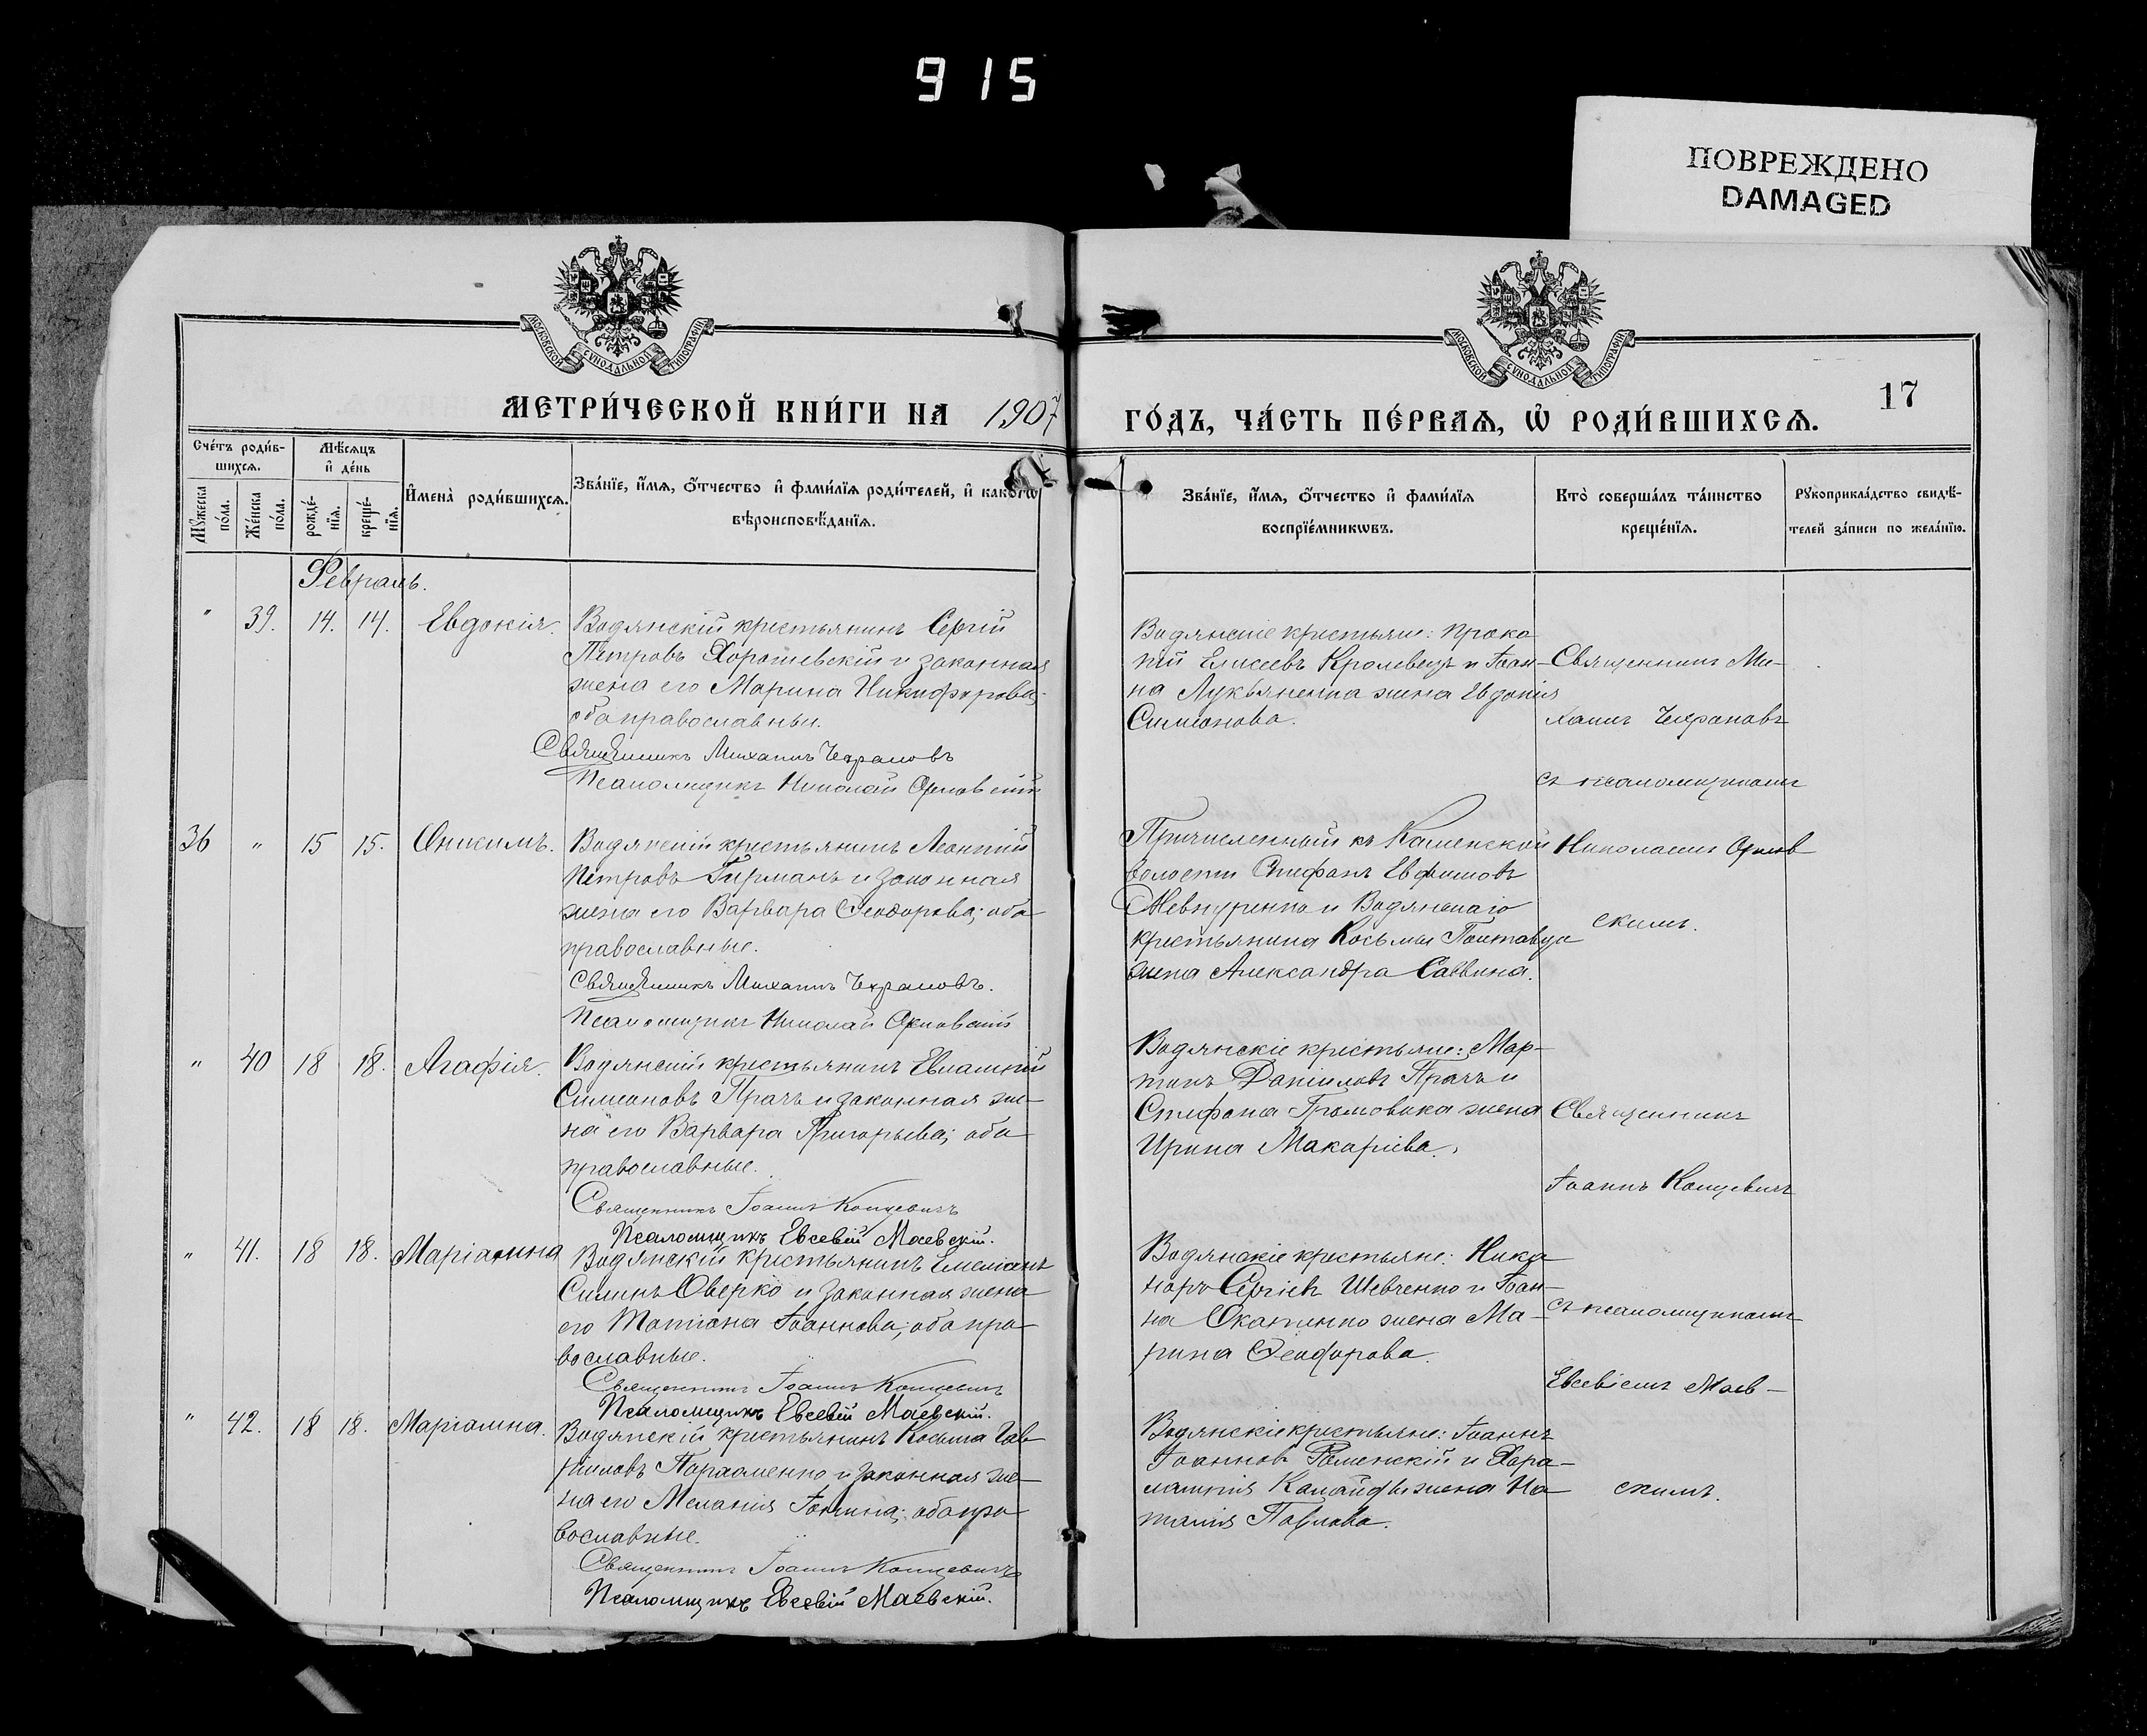 915
ПОВРЕЖДЕНО
DAMAGED
МОСКОВСКОЙ СѴНОДАЛЬНОЙ ТИПОГРАФІИ
МОСКОВСКОЙ СѴНОДАЛЬНОЙ ТИПОГРАФІИ
17
МЕТРИ́ЧЕСКОЙ КНИ́ГИ НА 1907
ГО́ДЪ, ЧА́СТЬ ПЕ́РВАЯ, Ѿ РОДИ́ВШИХСЯ.
Сче́тъ роди́в-
шихся.
Мѣ́сяцъ
и де́нь
Мꙋжеска по́ла.
Же́нска по́ла.
рожде́-нїя.
креще́-нїя.
Имена̀ роди́вшихся.
Зва́нїе, и́мя, о́тчество и фами́лїя роди́телей, и како́гѡ
вѣроисповѣ́данїя.
Зва́нїе, и́мя, о́тчество и фами́лїя
воспрїе́мникѡвъ.
Кто̀ соверша́лъ та́инство
креще́нїя.
Рꙋкоприкла́дство свидѣ́-
телей за́писи по жела́нїю.
Февраль.
" 39. 14. 14. Евдокія. Водянскій крестьянинъ Сергій
Петровъ Хорошевскій и законная
жена его Марина Никифорова;
оба православные.
Священникъ Михаилъ Чехрановъ
Псаломщикъ Николай Орловскій
Водянскіе крестьяне: Проко-
пій Елисеевъ Кролевецъ и Іоан-
на Лукьяненка жена Евдокія
Симеонова.
Священникъ Ми-
хаилъ Чехрановъ
съ псаломщикомъ
36 " 15 15. Онисимъ. Водянскій крестьянинъ Леонтій
Петровъ Гирманъ и законная
жена его Варвара Ѳеодорова; оба
православные.
Священникъ Михаилъ Чехрановъ.
Псаломщикъ Николай Орловскій
Причисленный къ Каменской
волости Стефанъ Евфимовъ
и Водянскаго
крестьянина Косьмы Полтавца
жена Александра Саввина.
Николаемъ Орлов
скимъ.
" 40 18 18. Агафія. Водянскій крестьянинъ Евлампій
Симеоновъ Прачъ и законная же-
на его Варвара Григорьева; оба
православные.
Священникъ Іоаннъ Концевичъ
Псаломщикъ Евсевій Маевскій.
Водянскіе крестьяне: Мар-
тинъ Даніиловъ Прачъ и
Стефана Громовика жена
Ирина Макаріева.
Священникъ
Іоаннъ Концевичъ
" 41. 18 18. Маріамна Водянскій крестьянинъ Емеліанъ
Силинъ Оверко и законная жена
его Татіана Іоаннова; оба пра-
вославные.
Священникъ Іоаннъ Концевичъ
Псаломщикъ Евсевій Маевскій.
Водянскіе крестьяне: Ника-
норъ Сергіевъ Шевченко и Іоан-
на Скапенко жена Ма-
рина Ѳеодорова.
съ псаломщикомъ
Евсевіемъ Маев-
" 42. 18 18. Маріамна. Водянскій крестьянинъ Косьма Гав-
риловъ Пархоменко и законная же-
на его Меланія Іонина; оба пра-
вославные.
Священникъ Іоаннъ Концевичъ
Псаломщикъ Евсевій Маевскій.
Водянскіе крестьяне: Іоаннъ
Іоанновъ Раменскій и Хара-
лампія жена На-
талія Павлова.
скимъ.